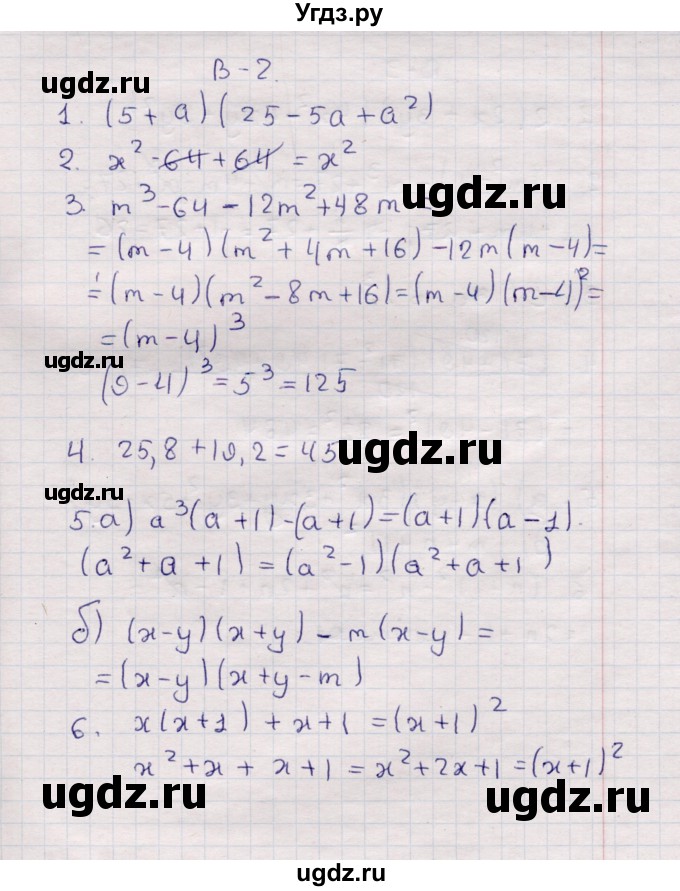 Угдз.ру
ugdz.ru
В-2.
1. (5 + a)(25 - 5a + a²)
2. x² - 64 + 64 = x²
3. m³ - 64 - 12m² + 48m
ugdz.ru
= (m - 4)(m² + 4m + 16) - 12m(m - 4) =
= (m - 4)(m² - 8m + 16) = (m - 4)(m - 4)² =
= (m - 4)³
ugdz.ru
(9 - 4)³ = 5³ = 125
4. 25,8 + 19,2 = 45
ugdz.ru
ugdz.ru
5. а) a³(a + 1) - (a + 1) = (a + 1)(a - 1).
(a² + a + 1) = (a² - 1)(a² + a + 1)
б) (x - y)(x + y) - m(x - y) =
= (x - y)(x + y - m)
6. x(x + 1) + x + 1 = (x + 1)²
x² + x + x + 1 = x² + 2x + 1 = (x + 1)²
ugdz.ru
ugdz.ru
ugdz.ru